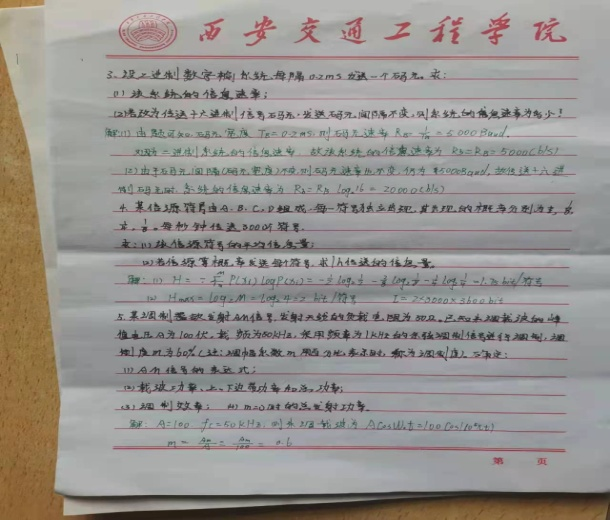 西安交通工程学院
3. 设二进制数字传输系统每隔0.2ms发送一个码元。求:
(1) 该系统的信息速率;
(2) 若改为传送十六进制信号码元,发送码元间隔不变,则系统的信息速率为多少?
解:(1) 由题可知码元宽度 TB=0.2ms,则码元速率 RB=1/TB=5000Baud.
对于二进制系统的信息速率 故该系统的信息速率为 Rb=RB=5000(b/s)
(2) 由于码元间隔(码元宽度)不变,则码元速率也不变,仍为5000Baud.故传送十六进
制码元时,系统的信息速率为 Rb=RB log₂16=20000(b/s)
4. 某信源符号由A、B、C、D组成,每一符号独立出现,其出现的概率分别为
每秒钟传送3000符号.
求:(1) 该信源符号的平均信息量;
(2) 求1h传送的信息量.
解:(1) H = -∑P(xi)logP(xi)= bit/符号
(2) Hmax=log₂M=log₂4=2 bit/符号 I=2×3000×3600bit
5. 某调制器欲发射AM信号,发射天线的负载电阻为50Ω.已知未调载波的峰
值电压A为100伏,载频为50kHz,使用频率为1kHz的余弦调制信号进行调制,调
制度m为60%(注:调幅系数m用百分比表示时,称为调制度).试确定:
(1) AM信号的表达式;
(2) 载波功率、上、下边带功率和总功率;
(3) 调制效率; (4) m=0时的总发射功率.
解: A=100 fc=50kHz 则未调载波为 Acosωct=100cos(10⁵πt)
m = Am/A = Am/100 = 0.6
第 页